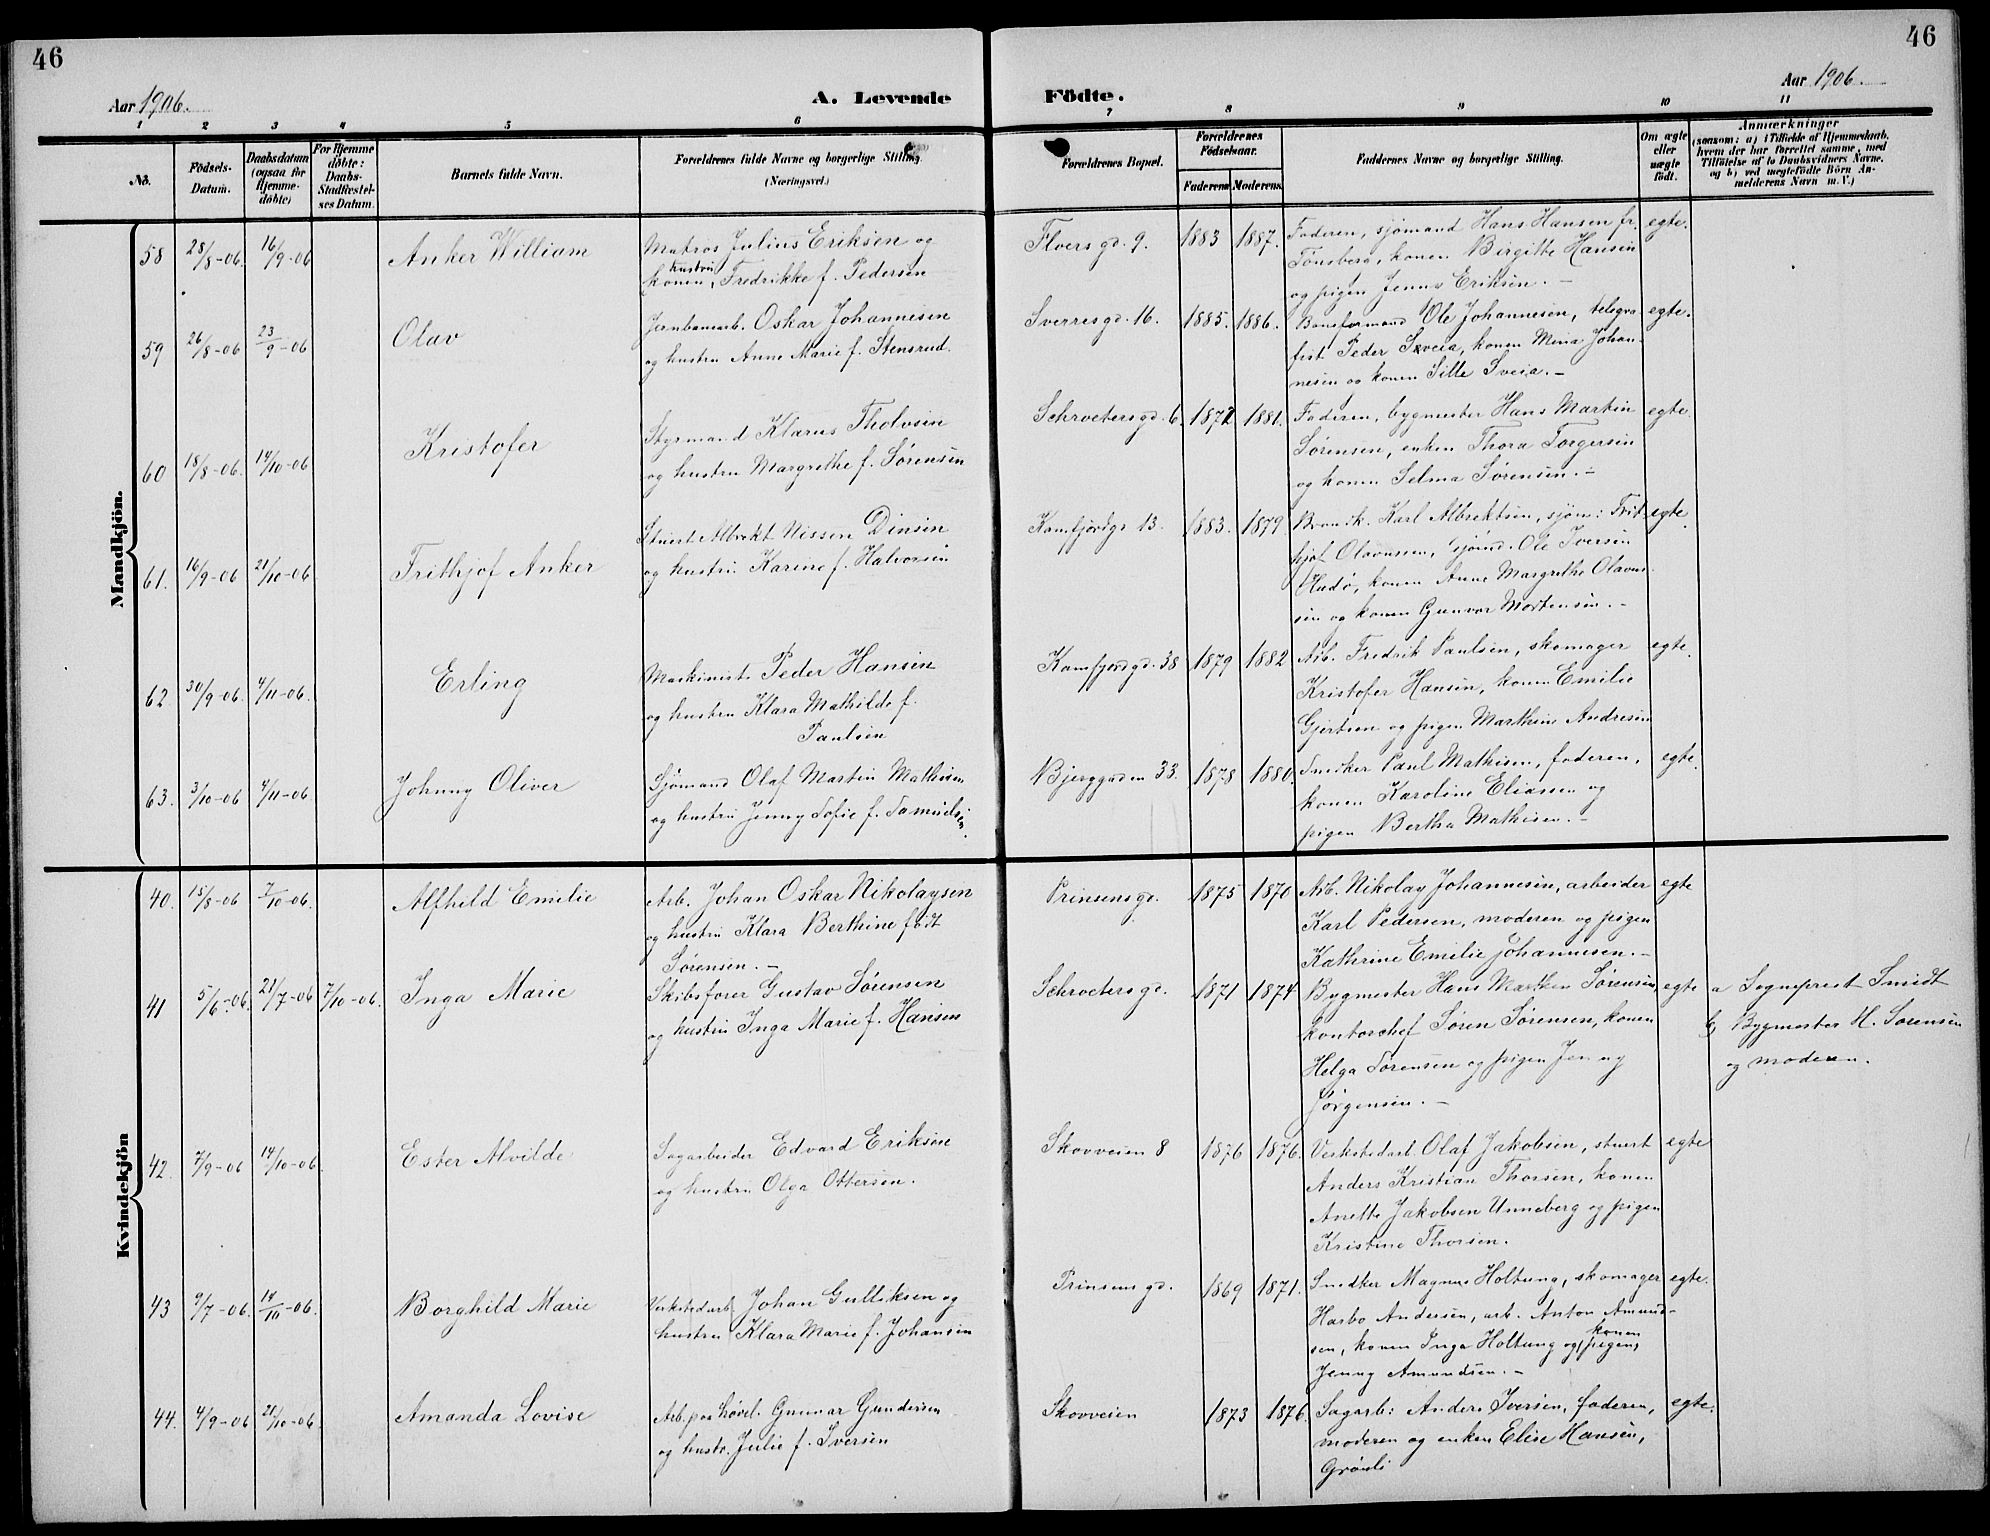 46
46
Aar 1906.
A. Levende
Födte.
Aar 1906.
1 2 3 4 5 6 7 8 9 10 11
No.
Födsels-
Datum.
Daabsdatum
(ogsaa for
Hjemme-
døbte)
For Hjemme
døbte:
Daabs-
Stadfæstel-
ses Datum.
Barnets fulde Navn.
Forældrenes fulde Navne og borgerlige Stilling.
(Næringsvei.)
Forældrenes Bopæl.
Forældrenes
Födselsaar.
Faderens Moderens
Faddernes Navne og borgerlig Stilling.
Om ægte
eller
uægte
født.
Anmærkninger
(saasom: a) i Tilfælde af Hjemmedaab,
hvem der har forrettet samme, med
Tilføielse af to Daabsvidners Navne.
og b) ved uægtefødte Börn An-
melderens Navn m. V.)
Mandkjön.
58 28/8-06. 16/9-06 Anker William
Matros Julius Eriksen og
hustru
konen, Fredrikke f. Pedersen
Elversgd. 9. 1883 1887.
Faderen, sjömand Hans Hansen fr. egte.
Tönsberg, konen Birgitte Hansen
og pigen Jenny Eriksen. -
59 26/8-06 23/9-06 Olav
Jernbanearb. Oskar Johannesen
og hustru Anne Marie f. Stensrud.
Sverresgd. 16. 1885. 1886.
Baneformand Ole Johannesen, telegra egte.
fist Peder Sveia, konen Mina Johan-
nesen og konen Sille Sveia. -
60 18/8-06. 14/10-06 Kristofer
Styrmand Klarus Tholvsen
og hustru Margrethe f. Sørensen
Schroetersgd. 6. 1872 1881.
Faderen, bygmester Hans Martin egte.
Sörensen, enken Thora Torgersen
og konen Selma Sørensen. -
61. 16/9-06 21/10-06 Frithjof Anker
Stuert Albrekt Nissen Dinsen
og hustru Karine f. Halvorsen
Kamfjordgt 13. 1883. 1879
Karl Albrektsen, sjöm: Frit egte.
hjof Olavussen, sjömd. Ole Iversen
Hudø, konen Anne Margrethe Olavus-
sen og konen Gunvor Mortensen. -
62. 30/9-06. 4/11-06. Erling
Maskinist Peder Hansen
og hustru Klara Mathilde f.
Paulsen
Kamfjordgd. 38 1879 1882
Arb. Fredrik Paulsen, skomager egte.
Kristofer Hansen, konen Emilie
Gjertsen og pigen Marthine Andresen
63. 3/10-06 4/11-06. Johnny Oliver
Sjömand Olaf Martin Mathisen
og hustru Jenny Sofie f. Samuelsen.
Bjerggaden 33. 1878 1880.
Snedker Paul Mathisen, faderen, egte.
konen Karoline Eliassen og
pigen Bertha Mathisen. -
Kvindekjön
40. 15/8-06 7/10-06. Alfhild Emilie
Arb. Johan Oskar Nikolaysen
og hustru Klara Berthine född
Sørensen. -
Prinsensgd. 1875 1870
Arb. Nikolay Johannesen, arbeider egte
Karl Pedersen, moderen og pigen
Kathrine Emilie Johannesen. -
41 5/6-06. 21/7-06 7/10-06. Inga Marie
Skibsförer Gustav Sørensen
og hustru Inga Marie f. Hansen
Schroetersgd. 1871 1874
Bygmester Hans Martin Sörensen, egte
kontorchef Sören Sörensen, konen
Helga Sörensen og pigen Jenny
Jörgensen. -
a Sogneprest Smidt
b, Bygmester H. Sorensen
og moderen.
42. 7/9-06 14/10-06. Ester Alvilde
Sagarbeider Edvard Eriksen
og hustru Olga Ottersen.
Skovveien 8 1876 1876.
Verkstedarb. Olaf Jakobsen, stuert egte
Anders Kristian Thorsen, konen
Anette Jakobsen Unneberg og pigen
Kristine Thorsen.
43 9/7-06. 14/10-06. Borghild Marie
Verkstedarb. Johan Gulliksen og
hustru Klara Marie f. Johansen
Prinsensgd. 1869 1871.
Snedker Magnus Holtung, skomager egte.
Harbo Andersen, arb. Anton Amund-
sen, konen Inga Holtung og pigen,
konen
Jenny Amundsen. -
44. 4/9-06 21/10-06. Amanda Lovise
Arb. paa hövl. Gunnar Gundersen
og hustr. Julie f. Iversen
Skovveien 1873 1876.
Sagarb: Anders Iversen, faderen, egte.
moderen og enken Elise Hansen,
Grönli